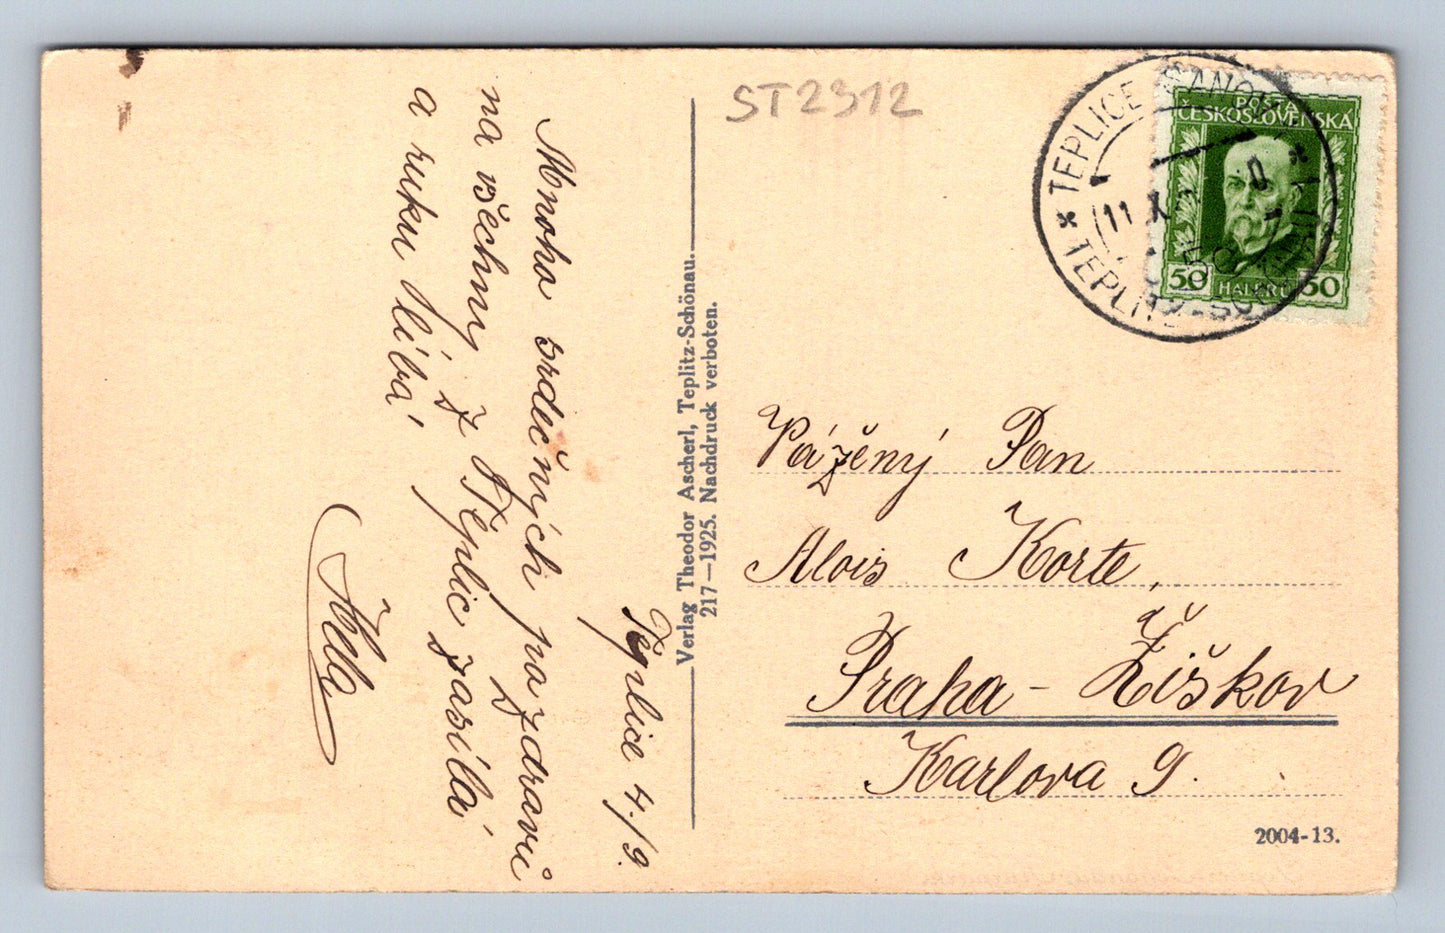 ST2312
TEPLICE
TEPLITZ-
11
POŠTA
ČESKOSLOVENSKÁ
50 HALÉŘŮ 50
Teplice 4./9.
Mnoho srdečných pozdravů
na všechny z Teplic zasílá
a ruku líbá
Verlag Theodor Ascherl, Teplitz-Schönau.
217—1925. Nachdruck verboten.
Vážený Pan
Alois Korte,
Praha - Žižkov
Karlova 9.
2004-13.